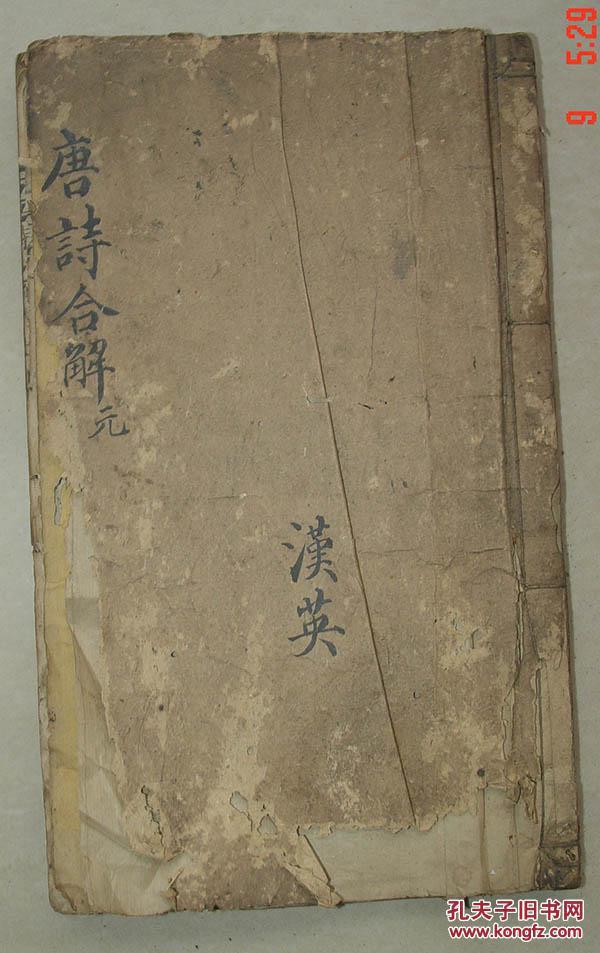 唐詩合解 元
漢英
9 5:29
孔夫子旧书网
www.kongfz.com